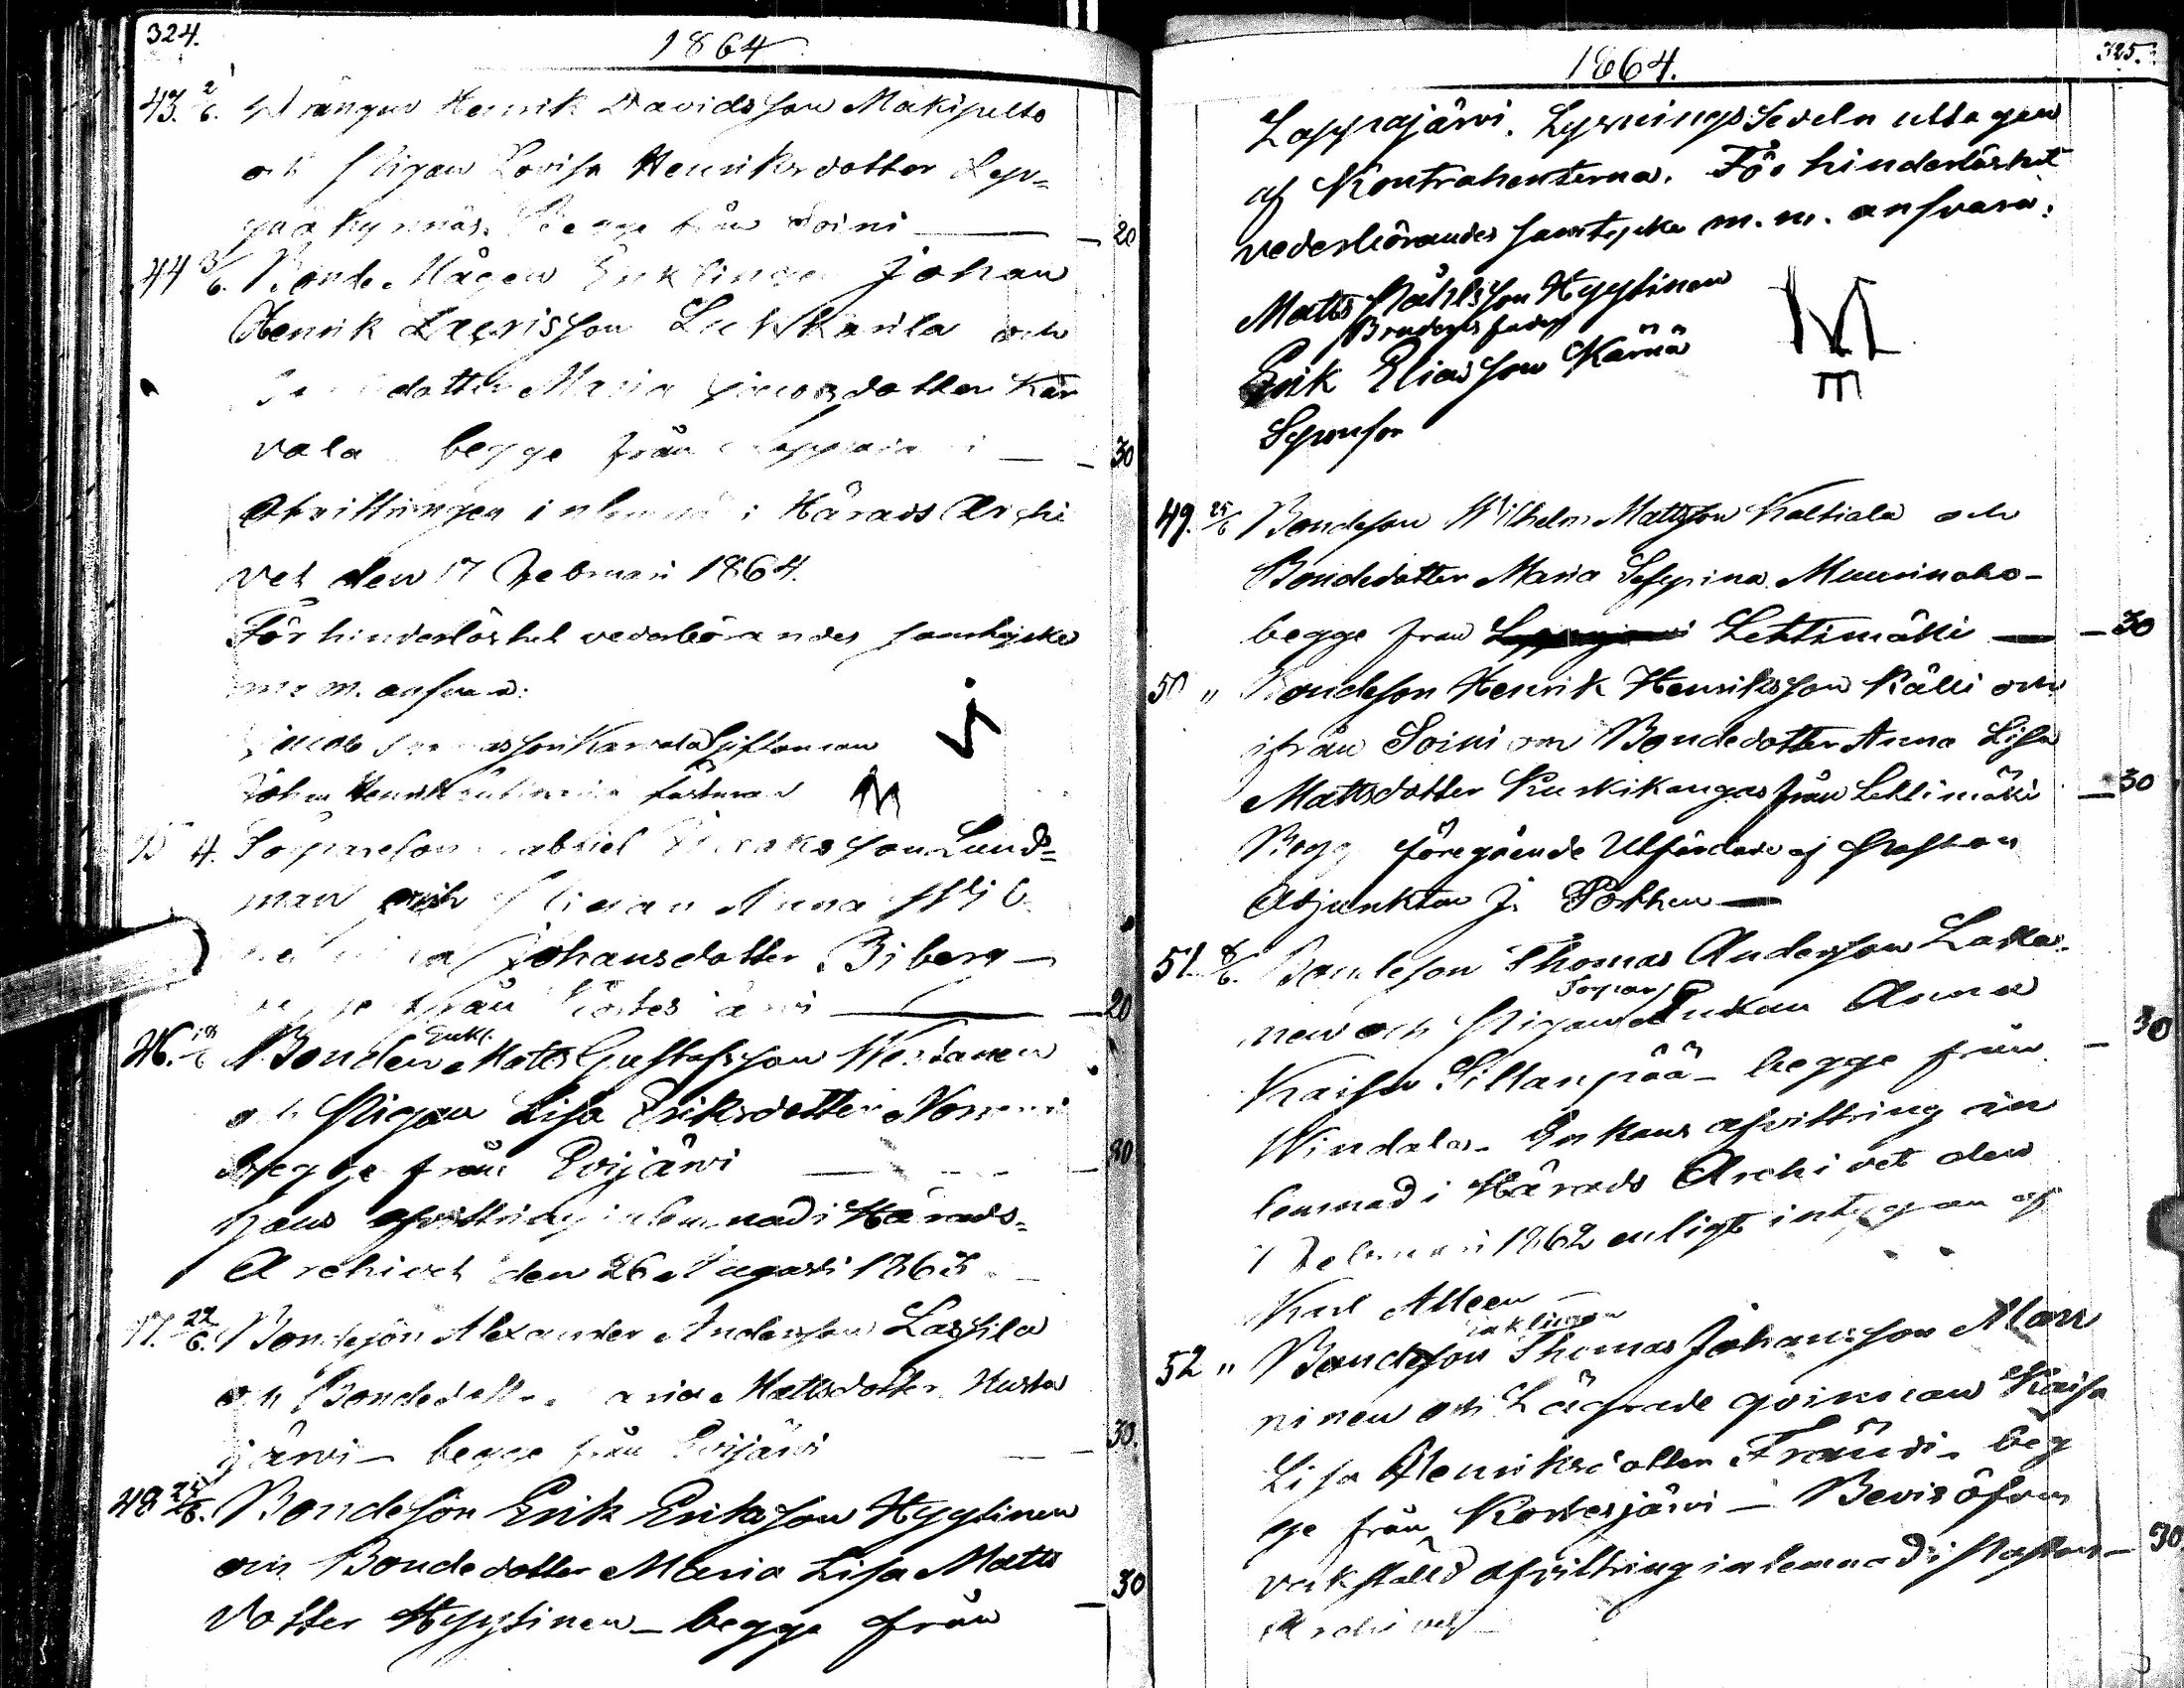 324.
1864
43. 2/6. Drängen Henrik Davidsson Mäkipelto
och Pigan Lovisa Henriksdotter Lep-
päkynnäs. Begge från Soini — 20
44 3/6. Bonde Mågen Enklingen Johan
Henrik Larsson Luhkarila och
dotter Maria dotter Kar
vala begge från Lappajärvi — 30
Afvittringen inlemnad i Härads Archi
vet den 17 Februari 1864.
För hinderlöshet vederbörandes samtycke
m. m. ansvara:
Karvala Giftoman
Johan Henrik fästman
4. Torpareson Gabriel son Lund-
man och Pigan Anna Wil
Johansdotter Biberg —
begge från Kortesjärvi — 20
46. Bonden Enkl. Matts Gustafsson Westanen
och Pigan Lisa Eriksdotter
begge från Evijärvi — 80
hans afvittring inlemnad i Härads-
Archivet den 26 Augusti 1863
47. 22/6. Bondeson Alexander Andersson Lassila
och Bondedotter Maria Mattsdotter
järvi — begge från Evijärvi — 30.
48 24/6. Bondeson Erik Eriksson Hyytinen
och Bondedotter Maria Lisa Matts
dotter Hyytinen — begge från — 30
1864.
325.
Lappajärvi. Lysnings Sedeln uttagen
af Kontrahenterna. För hinderlöshet
vederbörandes samtycke m. m. ansvara:
Matts Hyytinen
Brudens fader
Erik Eliasson Kärnä
Sponsor
49. 25/6 Bondeson Wilhelm Mattsson Kaltiala och
Bondedotter Maria Sefpina Muurinaho —
begge från Lehtimäki — 30
50 " Bondeson Henrik Henriksson Källi och
ifrån Soini och Bondedotter Anna Lisa
Mattsdotter Kuskikangas från Lehtimäki — 30
Begge föregående Utfärdade af Pastors
Adjunkten J. Forthen —
51. 8/6. Bondeson Thomas Andersson Laska-
nen och Pigan Torpar Enkan Anna
Kaisa Siltanpää — begge från — 30
Windala. Enkans afvittring in
lemnad i Härads Archivet den
Februari 1862 enligt intyg an af
Karl
52 " Bondeson Enklingen Thomas Johansson Man
ninen och Lägrade qvinnan Kaisa
Lisa Henriksdotter Frändi — beg
ge från Kortesjärvi — Bevis öfver
verkställd afvittring inlemnad i Pastors — 30
Archivet —